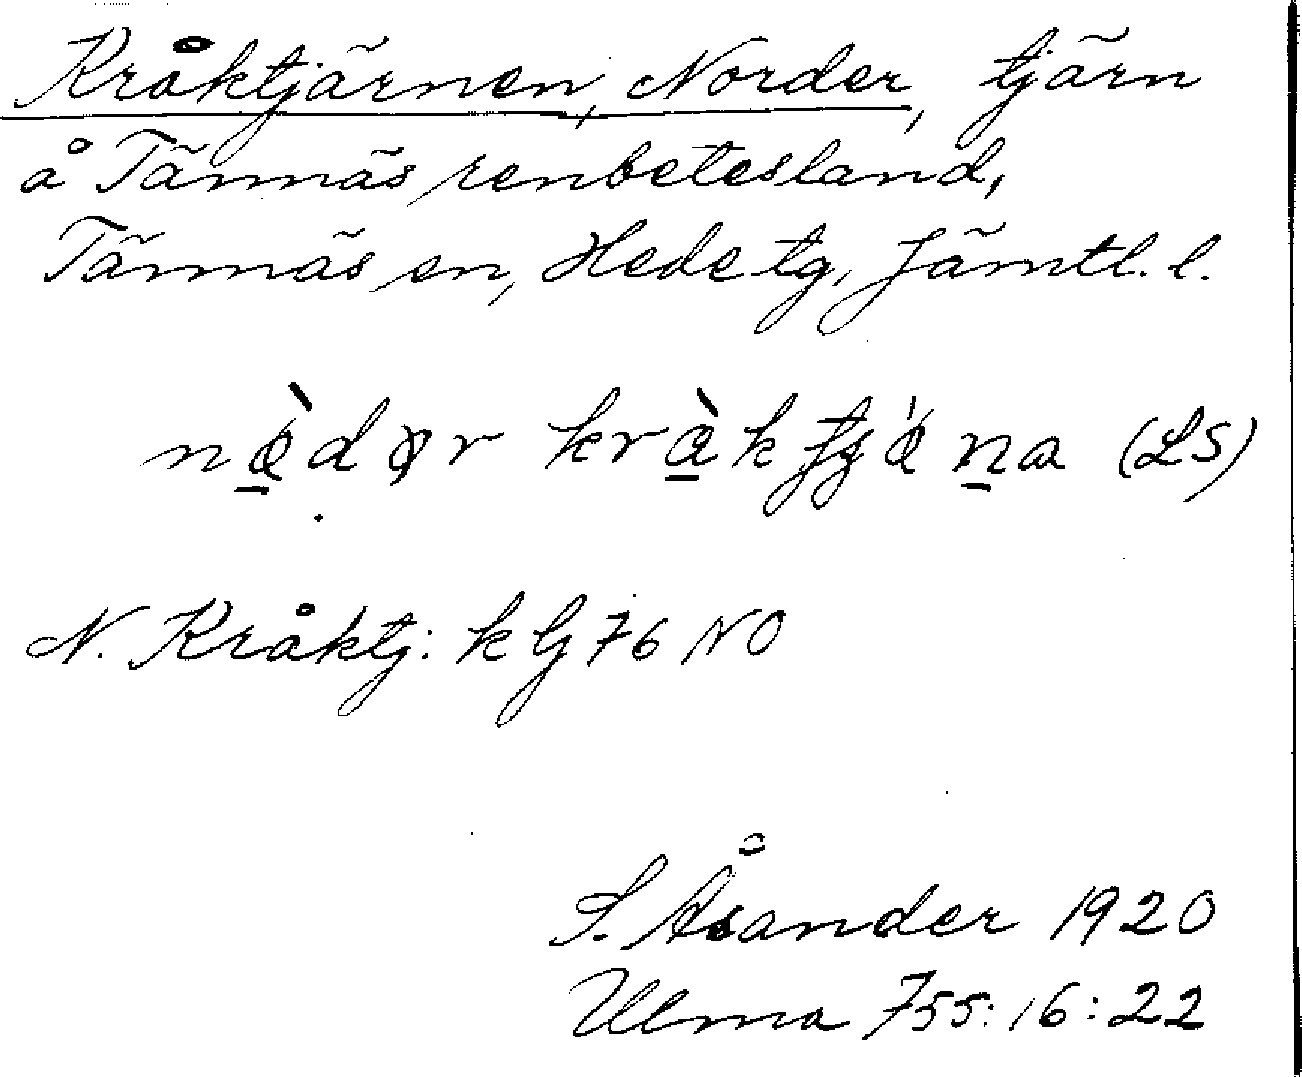 Kråktjärnen, Norder, tjärn
å Tännäs renbetesland,
Tännäs sn, Hede tg, Jämtl. l.
kràk (LS)
N. Kråktj: k Ij 76 NO
S. Åsander 1920
Ulma 755:16:22